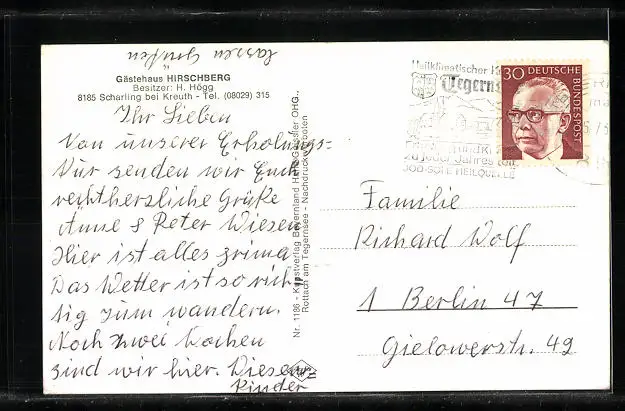 lassen Grüßen
Gästehaus HIRSCHBERG
Besitzer: H. Högg
8185 Scharling bei Kreuth - Tel. (08029) 315
Ihr Lieben
Von unserer Erholungs=
Kur senden wir Euch
recht herzliche Grüße
Anne & Peter Wiesen
Hier ist alles prima
Das Wetter ist so rich
tig zum wandern.
Noch zwei Wochen
sind wir hier. Diesen
Kinder
Nr. 1186 - Kunstverlag Bayernland HERB. Gessler OHG.,
Rottach am Tegernsee - Nachdruck verboten
Heilklimatischer
Tegerns
zu jeder Jahreszeit
JOD-SOLE HEILQUELLE
30 DEUTSCHE
BUNDESPOST
Familie
Richard Wolf
1 Berlin 47
Gielowerstr. 49